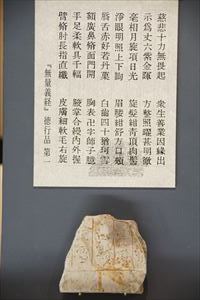 慈悲十力無畏起　衆生善業因縁出
示為丈六紫金暉　方整照曜甚明徹
毫相月旋項日光　旋髪紺青頂肉髻
淨眼明照上下眴　眉睫紺舒方口頰
脣舌赤好若丹菓　白齒四十猶珂雪
額廣鼻脩面門開　胸表卍字師子臆
手足柔軟具千輻　腋掌合縵内外握
臂脩肘長指直纖　皮膚細軟毛右旋
『無量義経』徳行品 第一